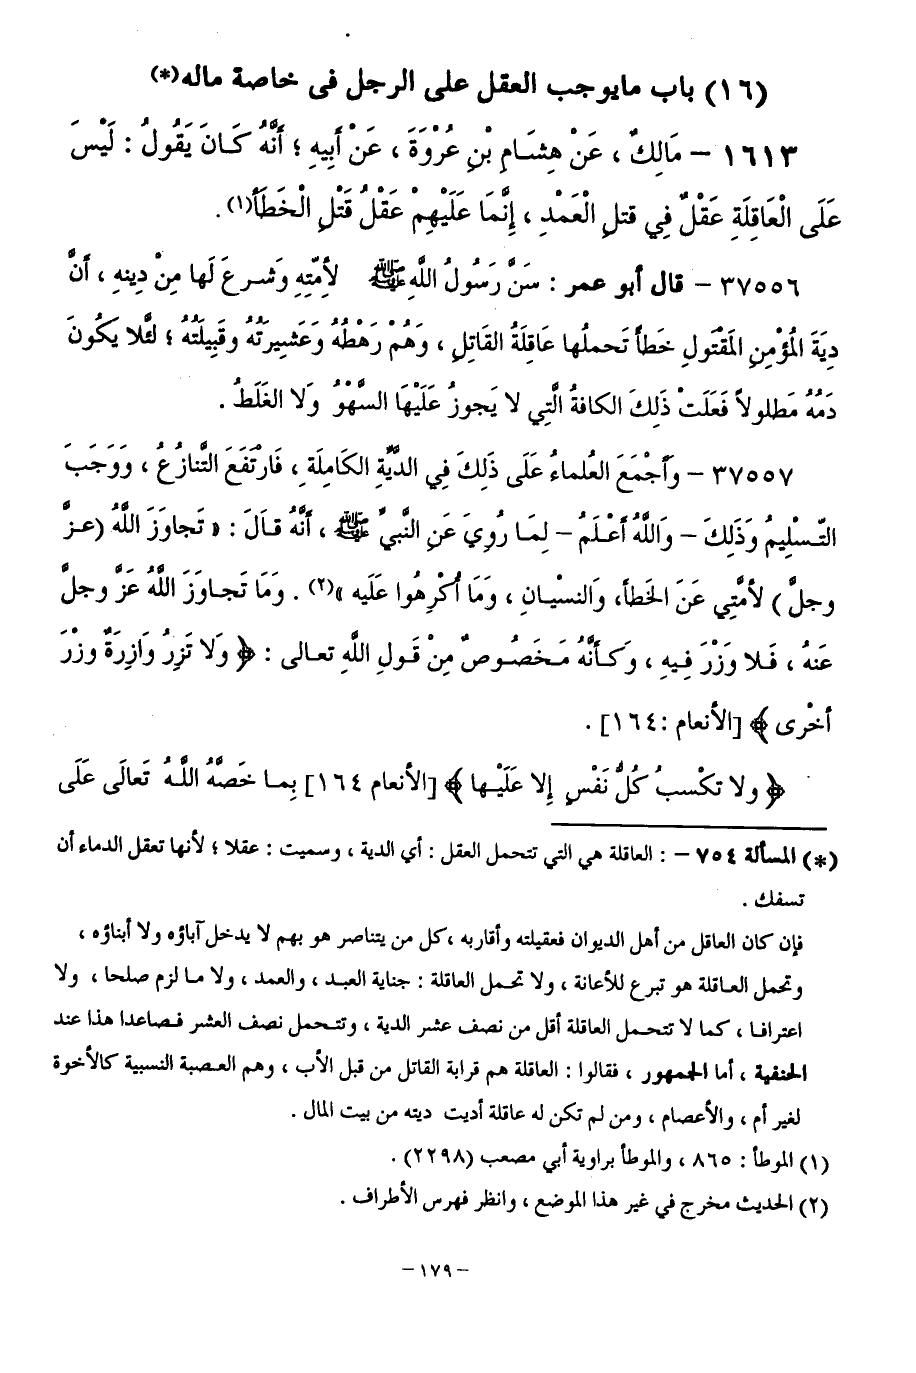 (١٦) باب مايوجب العقل على الرجل فى خاصة ماله(*)
١٦١٣ – مَالِكٌ ، عَنْ هِشَامِ بْنِ عُرْوَةَ ، عَنْ أَبِيهِ ؛ أَنَّهُ كَانَ يَقُولُ : لَيْسَ
عَلَى الْعَاقِلَةِ عَقْلٌ فِي قتلِ العَمْدِ ، إِنَّمَا عَلَيْهِمْ عَقْلُ قَتْلِ الْخَطَأَ(١).
٣٧٥٥٦ – قال أبو عمر : سَنَّ رَسُولُ اللَّهِ ﷺ لأِمَّتِهِ وَشَرعَ لَها مِنْ دِينِهِ ، أَنَّ
دِيَةَ المُؤْمِنِ المَقْتُولِ خطأً تَحملُها عَاقِلَةُ القَاتِلِ ، وَهُمْ رَهْطُهُ وَعَشِيرَتُهُ وقَبِيلَتُهُ ؛ لئَلا يكُونَ
دَمُهُ مَطلولاً فَعَلَتْ ذَلِكَ الكافةُ الَّتِي لا يَجوزُ عَلَيْهَا السهْوُ وَلا الغَلَطُ .
٣٧٥٥٧ – وَأَجْمَعَ العُلماءُ عَلَى ذَلِكَ فِي الدِّيَّةِ الكَامِلَةِ ، فَارْتَفَعَ التَّنازُعُ ، وَوَجَبَ
التّسْلِيمُ وَذَلِكَ – وَاللَّهُ أَعْلَمُ – لِمَا رُوِيَ عَنِ النَّبِيِّ ﷺ ، أَنَّهُ قَالَ : « تَجاوَزَ اللَّهُ (عزَّ
وجلَّ ) لأمَّتِي عَنَ الخَطأَ، وَالنسْيَانِ ، وَمَا أُكْرِهُوا عَلَيه »(٢) . وَمَا تَجاوَزَ اللَّهُ عَزَّ وجلَّ
عَنهُ ، فَلا وَزْرَ فِيهِ ، وَكَأَنَّهُ مَخَصُوصٌ مِنْ قَولِ اللَّهِ تعالى : ﴿ وَلا تَزِرُ وَازِرَةٌ وِزْرَ
أخْرى ﴾ [الأنعام :١٦٤] .
﴿ ولا تكْسبُ كُلُّ نَفْسٍ إِلا عَلَيْها ﴾ [الأنعام ١٦٤] بِما خَصَّهُ اللَّهُ تَعالَى عَلَى
(*) المسألة ٧٥٤ – : العاقلة هي التي تتحمل العقل : أي الدية ، وسميت : عقلا ؛ لأنها تعقل الدماء أن
تسفك .
فإن كان العاقل من أهل الديوان فعقيلته وأقاربه ،كل من يتناصر هو بهم لا يدخل آباؤه ولا أبناؤه ،
وتحمل العاقلة هو تبرع للأعانة ، ولا تحمل العاقلة : جناية العبد ، والعمد ، ولا ما لزم صلحا ، ولا
اعترافا ، كما لا تتحمل العاقلة أقل من نصف عشر الدية ، وتتحمل نصف العشر فصاعدا هذا عند
الحنفية ، أما الجمهور ، فقالوا : العاقلة هم قرابة القاتل من قبل الأب ، وهم العصبة النسبية كالأخوة
لغير أم ، والأعصام ، ومن لم تكن له عاقلة أديت ديته من بيت المال .
(١) الموطأ : ٨٦٥ ، والموطأ براوية أبي مصعب (٢٢٩٨) .
(٢) الحديث مخرج في غير هذا الموضع ، وانظر فهرس الأطراف .
– ١٧٩ –